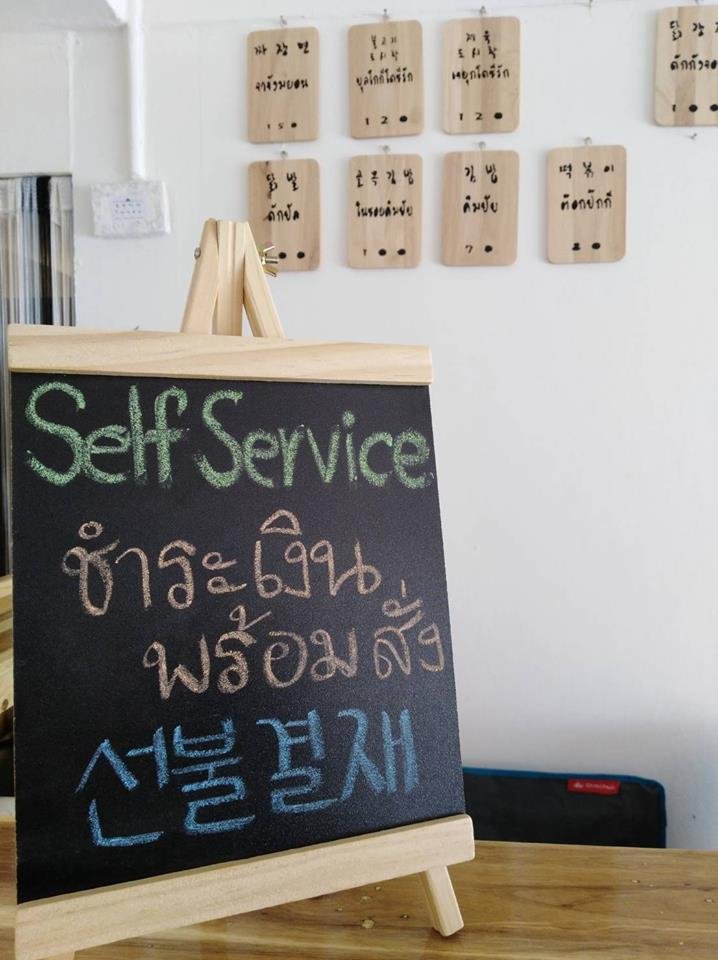 짜장면
จาจังมยอน
150
불고기
도시락
บุลโกกีโดชีรัก
120
제육
도시락
เจยุกโดชีรัก
120
닭강
ดักกังจอ
100
닭발
ดักบัล
김밥
100
김밥
คิมบับ
70
떡볶이
ต๊อกบ๊กกี
80
Self Service
ชำระเงิน
พร้อมสั่ง
선불 결재